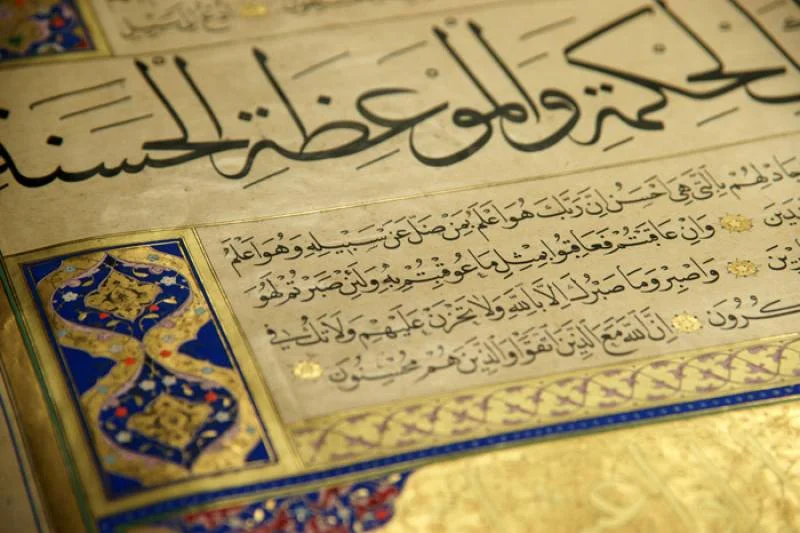 الحكمة والموعظة الحسنة
جَادِلْهُمْ بِالَّتِي هِيَ اَحْسَنُ اِنَّ رَبَّكَ هُوَ اَعْلَمُ بِمَنْ ضَلَّ عَنْ سَبِيلِهِ وَهُوَ اَعْلَمُ
وَاِنْ عَاقَبْتُمْ فَعَاقِبُوا بِمِثْلِ مَا عُوقِبْتُمْ بِهِ وَلَئِنْ صَبَرْتُمْ لَهُوَ
وَاصْبِرْ وَمَا صَبْرُكَ اِلَّا بِاللّٰهِ وَلَا تَحْزَنْ عَلَيْهِمْ وَلَا تَكُ فِي
كُرُونَ اِنَّ اللّٰهَ مَعَ الَّذِينَ اتَّقَوْا وَالَّذِينَ هُمْ مُحْسِنُونَ